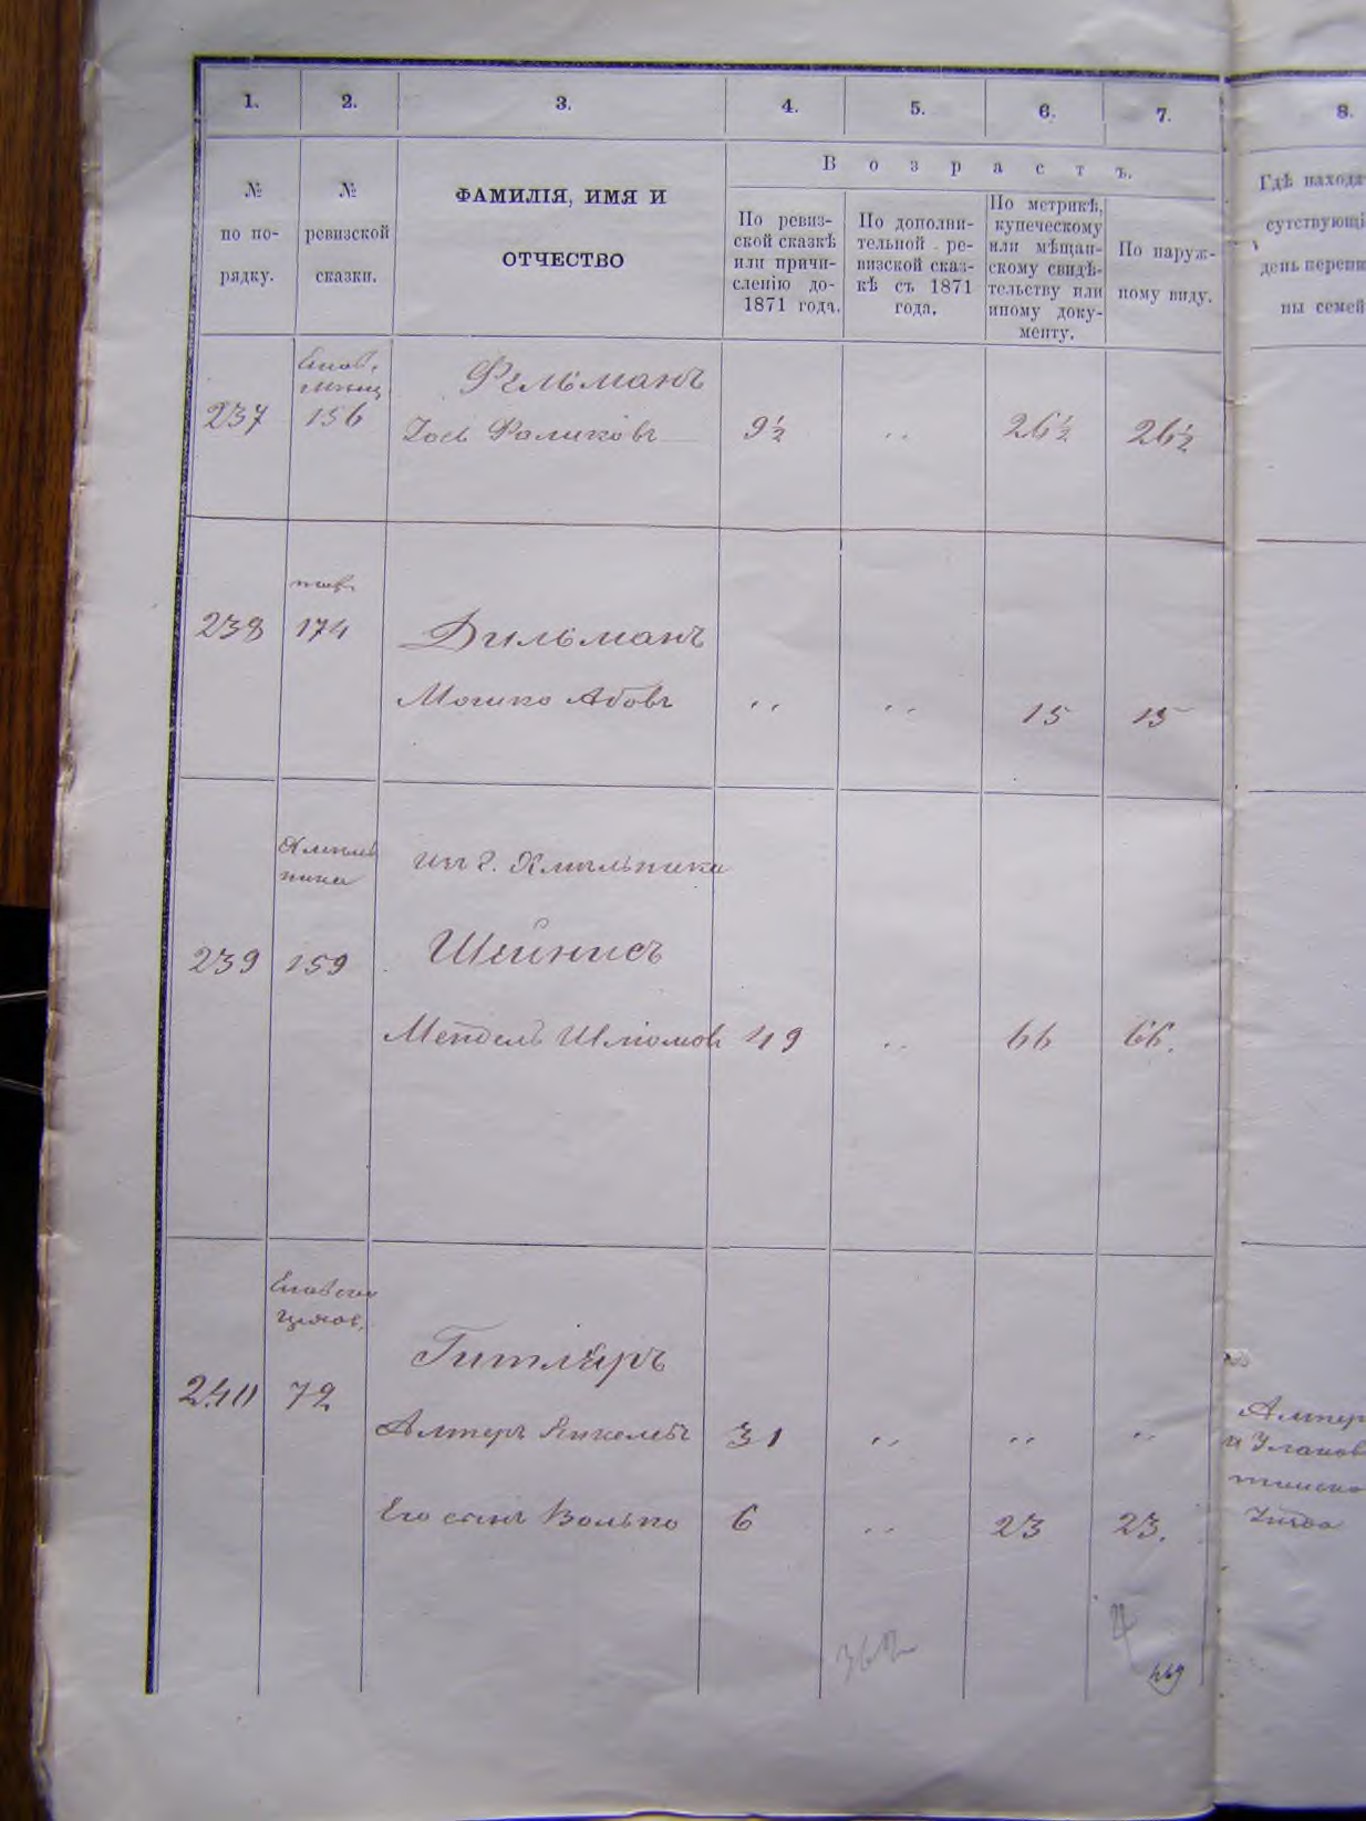 1. 2. 3. 4. 5. 6. 7. 8.
№ по по-рядку.
№ ревизской сказки.
ФАМИЛІЯ, ИМЯ И
ОТЧЕСТВО
Возрастъ.
По ревиз-
ской сказкѣ
или причи-
сленію до-
1871 года.
По дополни-
тельной ре-
визской сказ-
кѣ съ 1871
года.
По метрикѣ,
купеческому
или мѣщан-
скому свидѣ-
тельству или
иному доку-
менту.
По наруж-
ному виду.
Гдѣ находя
сутствующі
день перепи
ны семей
Фельманъ
237 156 Іось Фаликовъ 9½ 〃 26½ 26½
238 174 Дильманъ
Мошко Абовъ 〃 〃 15 15
Хмель
ника
изъ г. Хмѣльника
239 159 Шейнисъ
Мендель Шлiомовъ 49 〃 66 66.
Гитлеръ
240 72
Алтеръ Янкелевъ 31 〃 〃 〃
Его сынъ Волько 6 〃 23 23.
Алтер
и Уланов
449